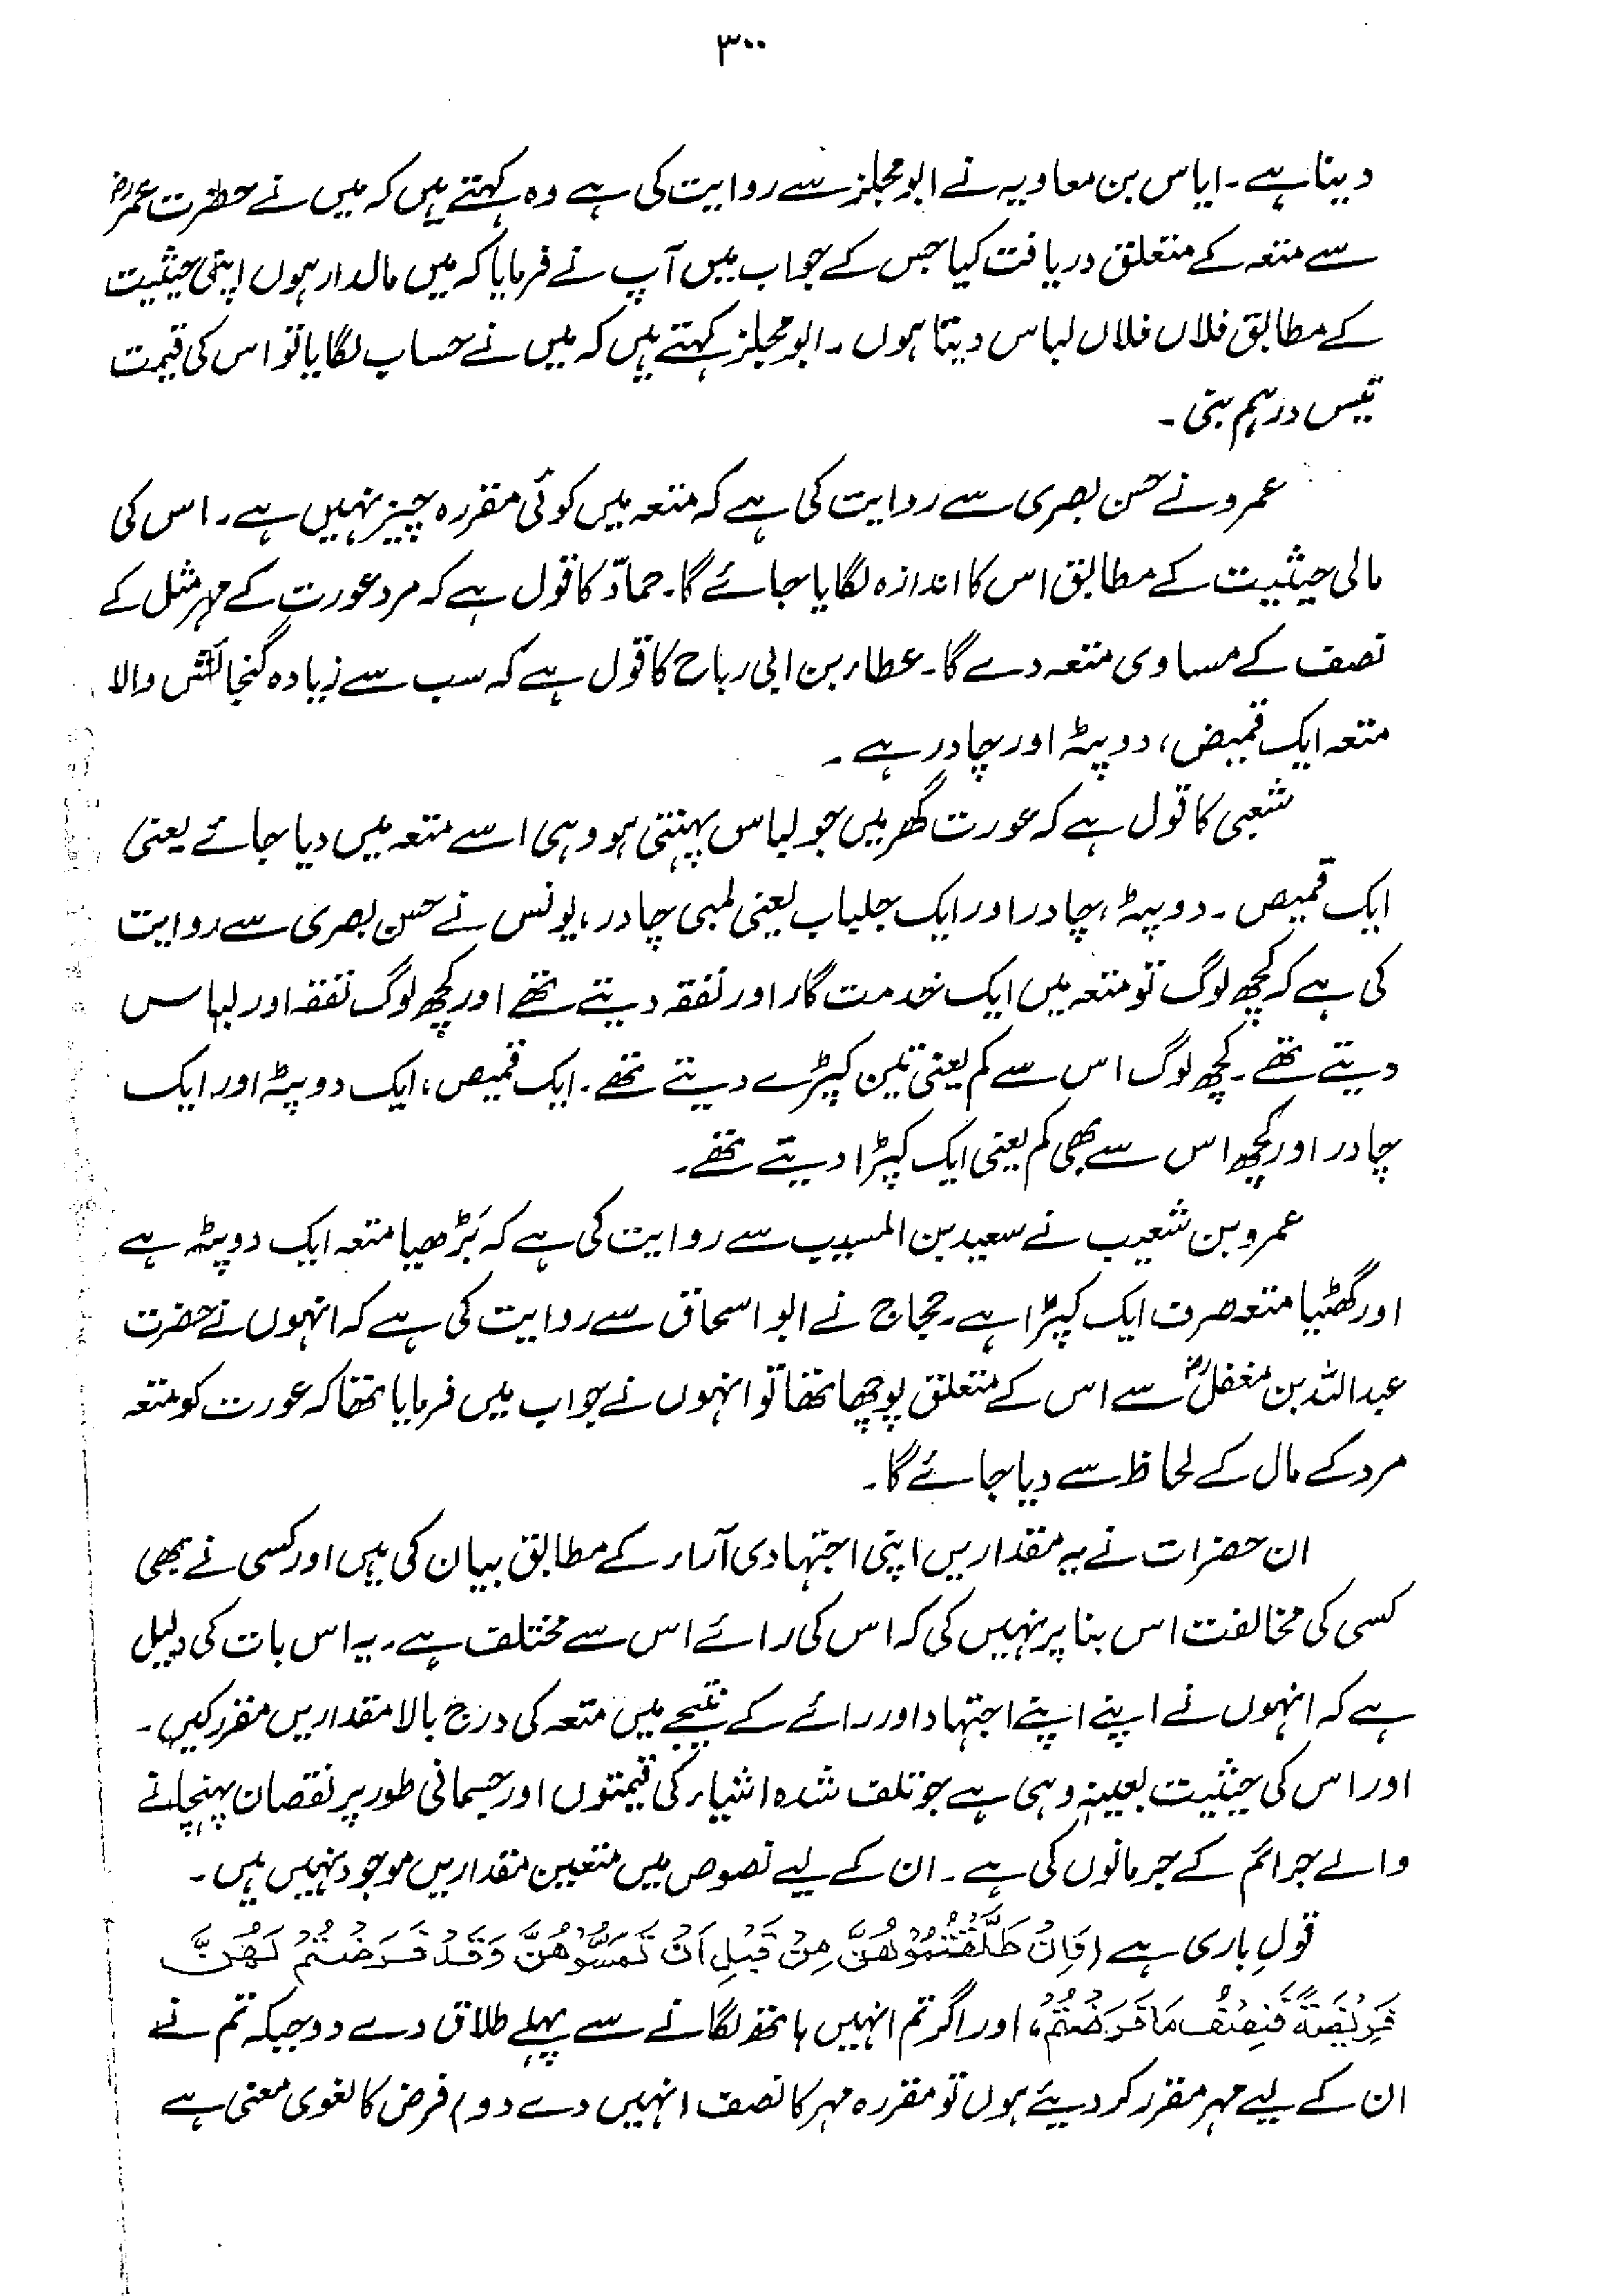 ۳۰۰
دینا ہے۔ ایاس بن معاویہ نے ابو مجلز سے روایت کی ہے وہ کہتے ہیں کہ میں نے حضرت عمرؓ
سے متعہ کے متعلق دریافت کیا جس کے جواب میں آپ نے فرمایا کہ میں مالدار ہوں اپنی حیثیت
کے مطابق فلاں فلاں لباس دیتا ہوں۔ ابو مجلز کہتے ہیں کہ میں نے حساب لگایا تو اس کی قیمت
تیس درہم بنی۔
عمرو نے حسن بصری سے روایت کی ہے کہ متعہ میں کوئی مقررہ چیز نہیں ہے۔ اس کی
مالی حیثیت کے مطابق اس کا اندازہ لگایا جائے گا۔ حمادؔ کا قول ہے کہ مرد عورت کے مہر مثل کے
نصف کے مساوی متعہ دے گا۔ عطاء بن ابی رباح کا قول ہے کہ سب سے زیادہ گنجائش والا
متعہ ایک قمیض، دوپٹہ اور چادر ہے۔
شعبی کا قول ہے کہ عورت گھر میں جو لباس پہنتی ہو وہی اسے متعہ میں دیا جائے یعنی
ایک قمیص۔ دوپٹہ، چادر اور ایک جلباب یعنی لمبی چادر، یونس نے حسن بصری سے روایت
کی ہے کہ کچھ لوگ تو متعہ میں ایک خدمت گار اور نفقہ دیتے تھے اور کچھ لوگ نفقہ اور لباس
دیتے تھے۔ کچھ لوگ اس سے کم یعنی تین کپڑے دیتے تھے۔ ایک قمیص، ایک دوپٹہ اور ایک
چادر اور کچھ اس سے بھی کم یعنی ایک کپڑا دیتے تھے۔
عمرو بن شعیب نے سعید بن المسیب سے روایت کی ہے کہ بَڑھیا متعہ ایک دوپٹہ ہے
اور گھٹیا متعہ صرف ایک کپڑا ہے۔ حجاج نے ابو اسحاق سے روایت کی ہے کہ انہوں نے حضرت
عبداللہ بن مغفلؓ سے اس کے متعلق پوچھا تھا تو انہوں نے جواب میں فرمایا تھا کہ عورت کو متعہ
مرد کے مال کے لحاظ سے دیا جائے گا۔
ان حضرات نے یہ مقداریں اپنی اجتہادی آراء کے مطابق بیان کی ہیں اور کسی نے بھی
کسی کی مخالفت اس بنا پر نہیں کی کہ اس کی رائے اس سے مختلف ہے۔ یہ اس بات کی دلیل
ہے کہ انہوں نے اپنے اپنے اجتہاد اور رائے کے نتیجے میں متعہ کی درج بالا مقداریں مقرر کیں۔
اور اس کی حیثیت بعینہٖ وہی ہے جو تلف شدہ اشیاء کی قیمتوں اور جسمانی طور پر نقصان پہنچانے
والے جرائم کے جرمانوں کی ہے۔ ان کے لیے نصوص میں متعین مقداریں موجود نہیں ہیں۔
قولِ باری ہے (فَاِنْ طَلَّقْتُمُوْهُنَّ مِنْ قَبْلِ اَنْ تَمَسُّوْهُنَّ وَقَدْ فَرَضْتُمْ لَهُنَّ
فَرِيْضَةً فَنِصْفُ مَا فَرَضْتُمْ، اور اگر تم انہیں ہاتھ لگانے سے پہلے طلاق دے دو جبکہ تم نے
ان کے لیے مہر مقرر کر دیئے ہوں تو مقررہ مہر کا نصف انہیں دے دو) فرض کا لغوی معنی ہے